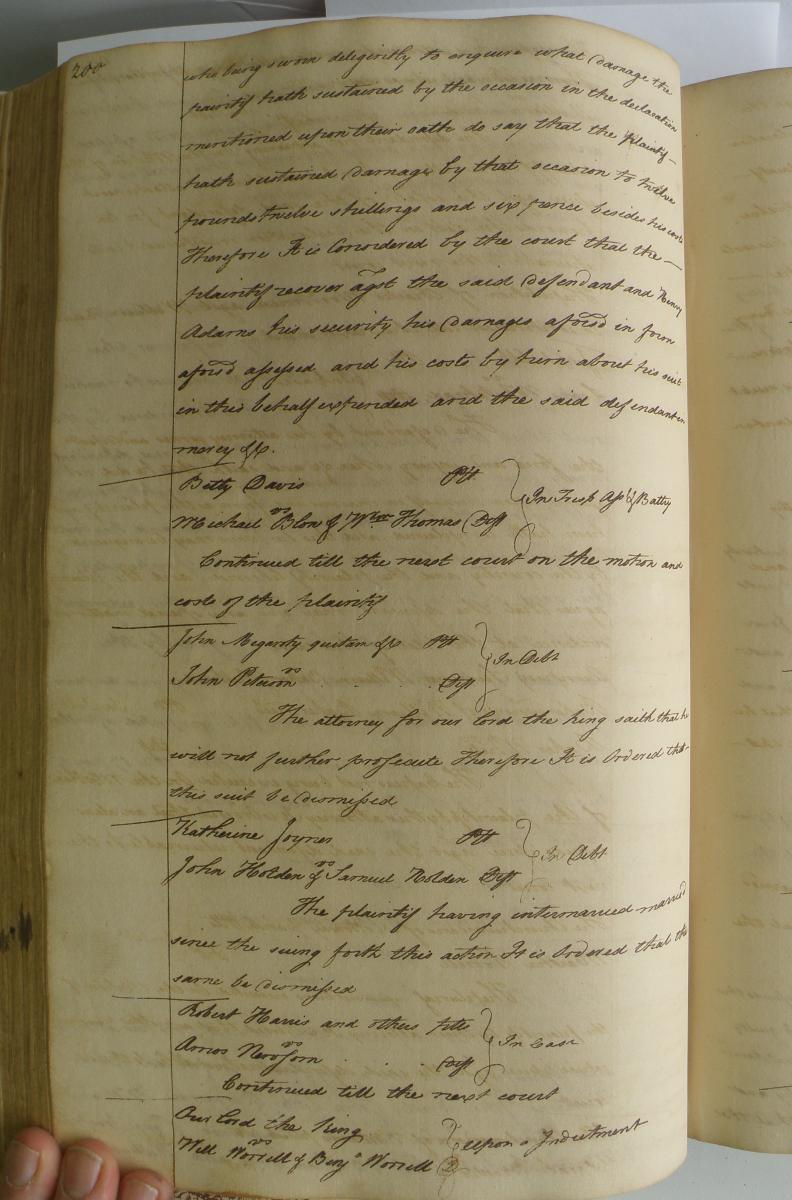 200
who being sworn deligintly to enquire what Damage the
plaintif hath sustained by the occasion in the declaration
mentioned upon their oath do say that the plaintif —
hath sustained Damage by that occasion to twelve
pounds twelve shillings and six pence besides his costs
Therefore It is Considered by the court that the —
plaintif recover agst the said Defendant and Henry
Adams his security his Damages aforsd in form
aforsd assessed and his costs by him about his suit
in this behalf expended and the said defendant in
mercy &c.
Betty Davis Plt
vs
Michael Blon & Wm Thomas Deft
In Tresp Asst & Battry
Continued till the next court on the motion and
costs of the plaintif
John Megarity quitam &c Plt
vs
John Peterson . . . Deft
In Debt
The attorney for our lord the king saith that he
will not further prosecute Therefore It is Ordered that
this suit be Dismissed
Katherine Joyner Plt
vs
John Holden & Samuel Holden Deft
In Debt
The plaintif having intermarried married
since the suing forth this action It is Ordered that the
same be Dismissed
Robert Harris and others plts
vs
Amos Newsom . . . Deft
In Case
Continued till the next court
Our lord the king
vs
Will Worrell & Benja Worrell D
upon a Indictment